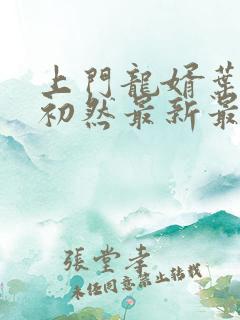 上門龍婿葉
初然最新最
張堂幸
未經同意禁止轉載